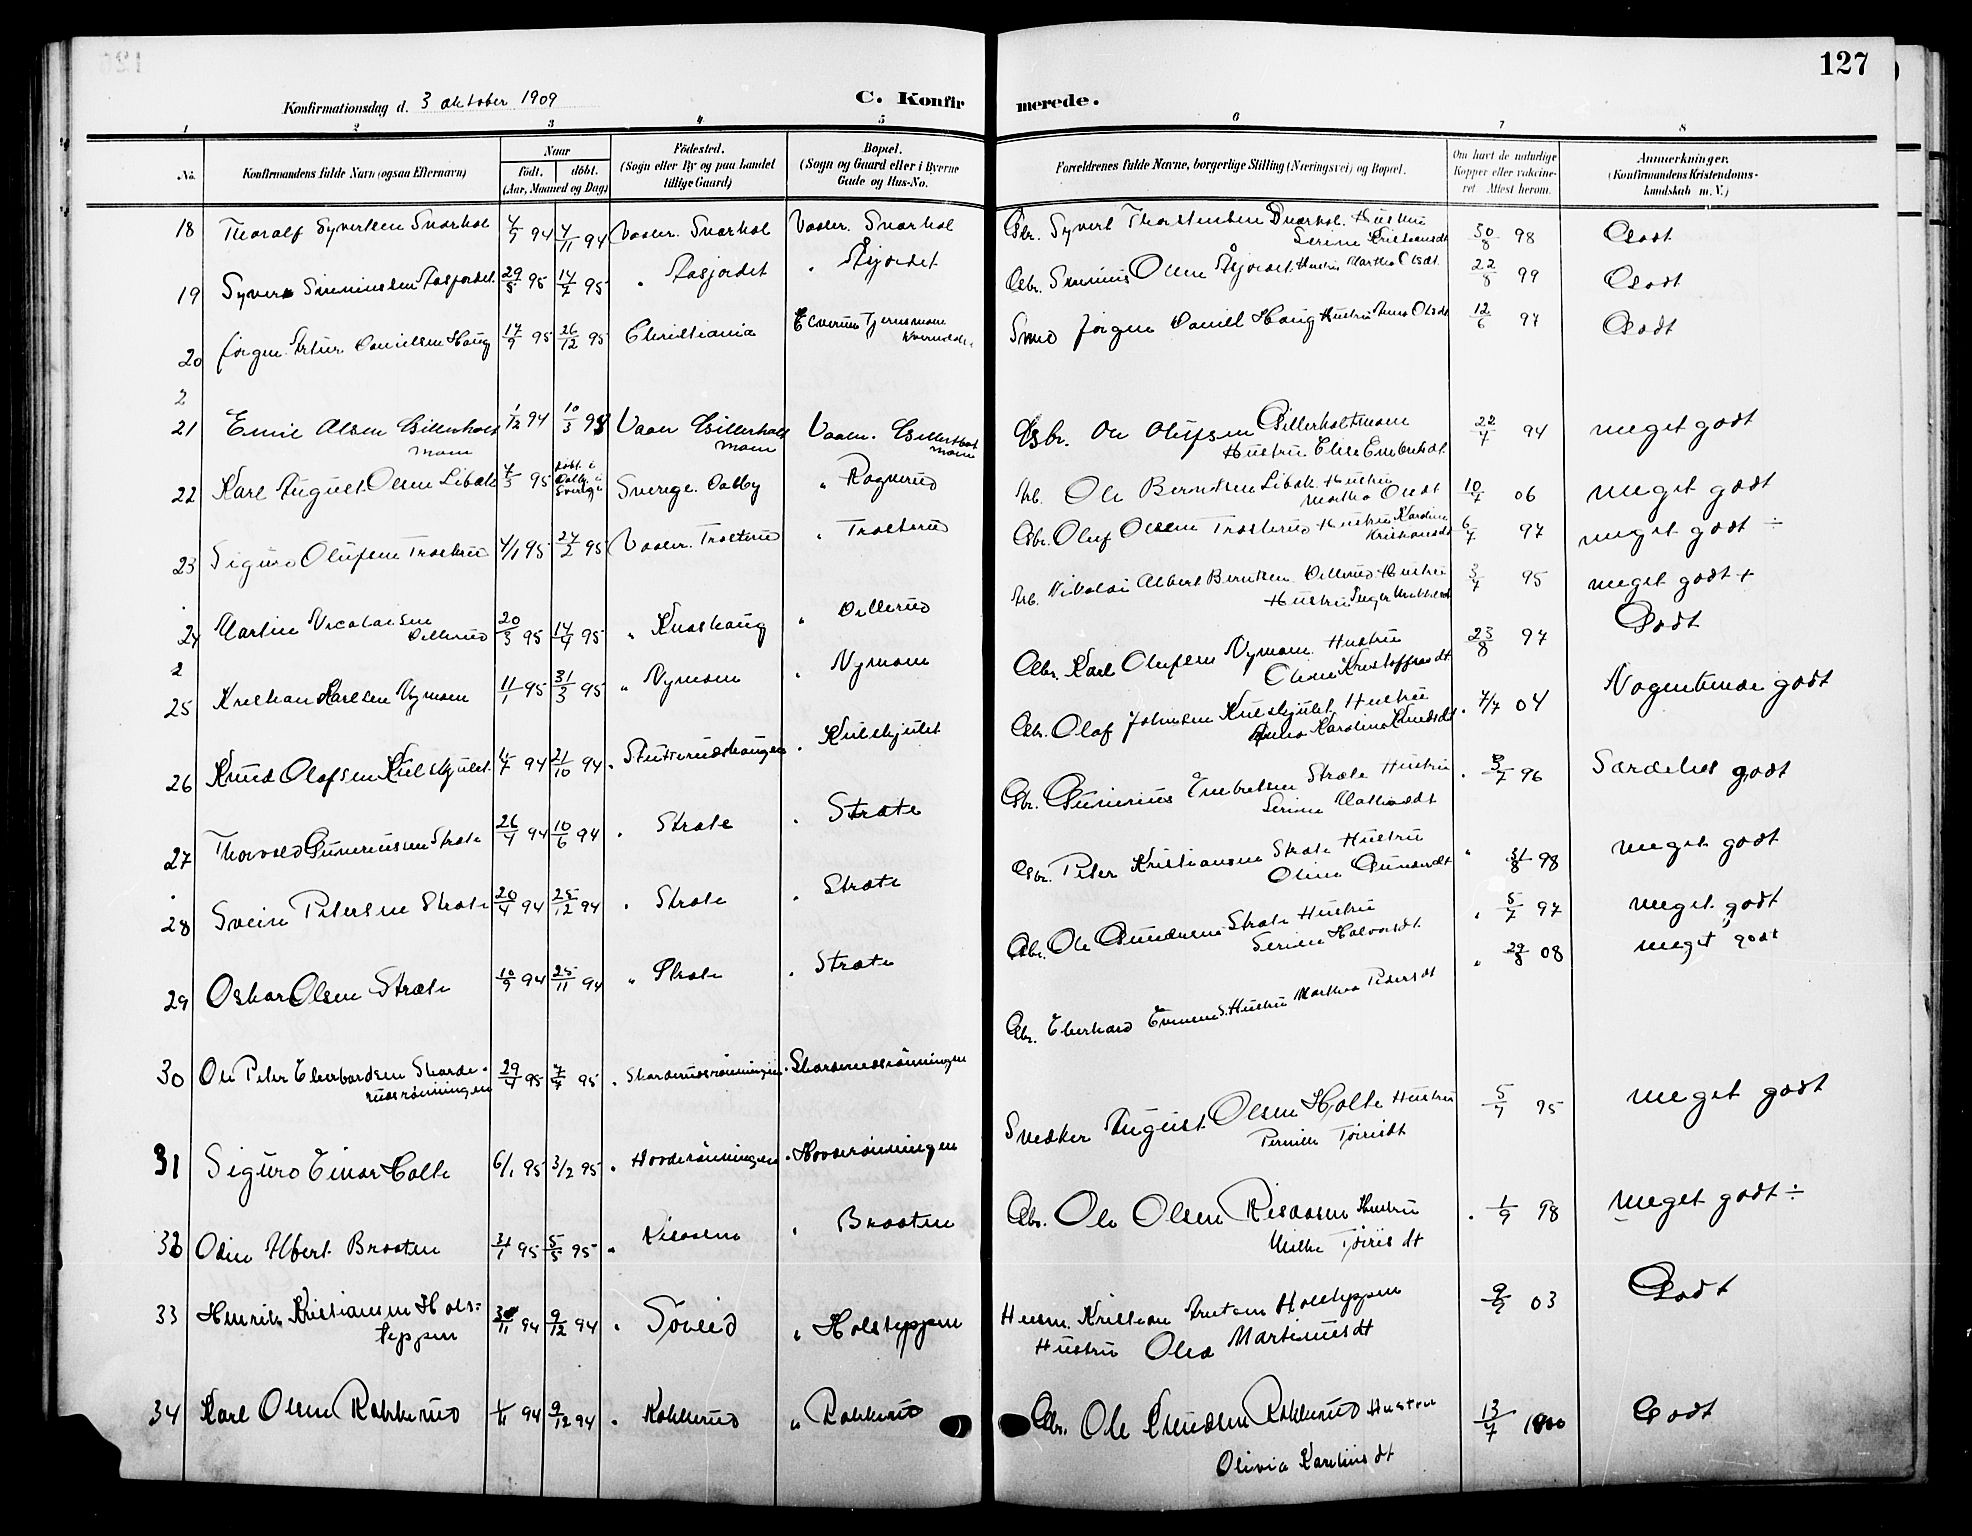 127
Konfirmationsdag d. 3 oktober 1909
C. Konfirmerede.
1 2 3 4 5 6 7 8
No. Konfirmandens fulde Navn (ogsaa Efternavn) Naar født. døbt. (Aar, Maaned og Dag) Fødested. (Sogn eller By og paa Landet tillige Gaard) Bopæl. (Sogn og Gaard eller i Byerne Gade og Hus-No. Forældrenes fulde Navne, borgerlige Stilling (Næringsvei) og Bopæl. Om havt de naturlige Kopper eller vaccineret Attest herom. Anmerkninger. (Konfirmandens Kristendomskundskab m. V.)
18 Thoralf Syvertsen Snarhol 94 94 Vaaler. Snarhol Vaaler. Snarhol Gbr. Syvert Thorstensen Snarhol. Hustru 30/8 98 Godt
19 29/5 95 14/7 95 " Aasjordet " Åsjordet Olsen Åsjordet Hustru Martha Olsdt. 22/8 99 Godt
20 Jørgen Artur Danielsen Haug 17/9 95 26/12 95 Christiania Elverum Smed Jørgen Daniel Haug Hustru Anna Olsdt 12/6 97 Godt
2
21 Emil Olsen Gillerholt moen 1/12 94 10/3 95 Vaaler Gillerholt moen Vaaler. Gillerholt moen Gbr. Ole Olufsen Gillerholtmoen Hustru Elise 22/7 94 meget godt
22 Karl August Olsen Libæk 95 døbt i Dalby i Sverige Sverige. Dalby " Rognerud Arb. Ole Berntsen Libæk. Hustru Martha Olsdt 10/7 06 meget godt
23 Sigurd Olufsen Trosterud 4/1 95 24/2 95 Vaaler. Trosterud " Trosterud Gbr. Oluf Olsen Trosterud Hustru Karoline Kristiansdt 6/7 97 meget godt ÷
24 Martin Nicolaisen Dellerud 20/3 95 14/4 95 " Knashaug " Dellerud Arb. Nikolai Albert Berntsen Dellerud Hustru 3/7 95 meget godt +
2
25 Kristian Karlsen Nymoen 11/1 95 31/3 95 " Nymoen " Nymoen Gbr. Karl Olufsen Nymoen. Hustru Oline Kristoffersdt. 23/8 97 Godt
26 Knud Olafsen Kulskjulet 94 21/10 94 " Stutterudshaugen " Kulskjulet Gbr. Olaf Johnsen Kulskjulet Hustru Anna Karoline Knudsdt. 7/7 04 Nogenlunde godt
27 Thorvald Gunerius en Stræte 26/4 94 10/6 94 " Stræte " Stræte Gbr. Gunerius Embretsen Stræte Hustru Serine 96 Særdeles godt
28 Svein Petersen Stræte 20/4 94 25/12 94 " Stræte " Stræte Gbr. Peter Kristiansen Stræte Hustru Oline 31/8 98 meget godt
29 Oskar Olsen Stræte 10/9 94 25/11 94 " Stræte " Stræte Gbr. Ole Stræte Hustru Serine Halvorsdt. " 5/7 97 meget godt
30 Ole Peter Eberhardsen Skarderudsrønningen 29/4 95 95 " Skarderudsrønningen " Skarderudsrønningen Gbr. Eberhard Evensen S. Hustru Marthea Pedersdt " 29/8 08 meget godt
31 Sigurd Einar Holte 6/1 95 3/2 95 " Hovderønningen " Hovderønningen Snedker August Olsen Holte Hustru Pernille 95 meget godt
32 Odin Albert Braaten 31/1 95 5/5 95 " Risaasen " Braaten Gbr. Ole Olsen Risaasen Hustru 1/9 98 meget godt ÷
33 Henrik Kristiansen Holsteppen 30/11 94 9/12 94 " Søveid " Holsteppen Husm. Kristian Antonsen Holsteppen Hustru Olea Martinusdt 03 Godt
34 Karl Olsen Rokkerud 94 9/12 94 " Rokkerud " Rokkerud Gbr. Ole Knudsen Rokkerud Hustru Olivia Karelinsdt 13/7 1900 Godt